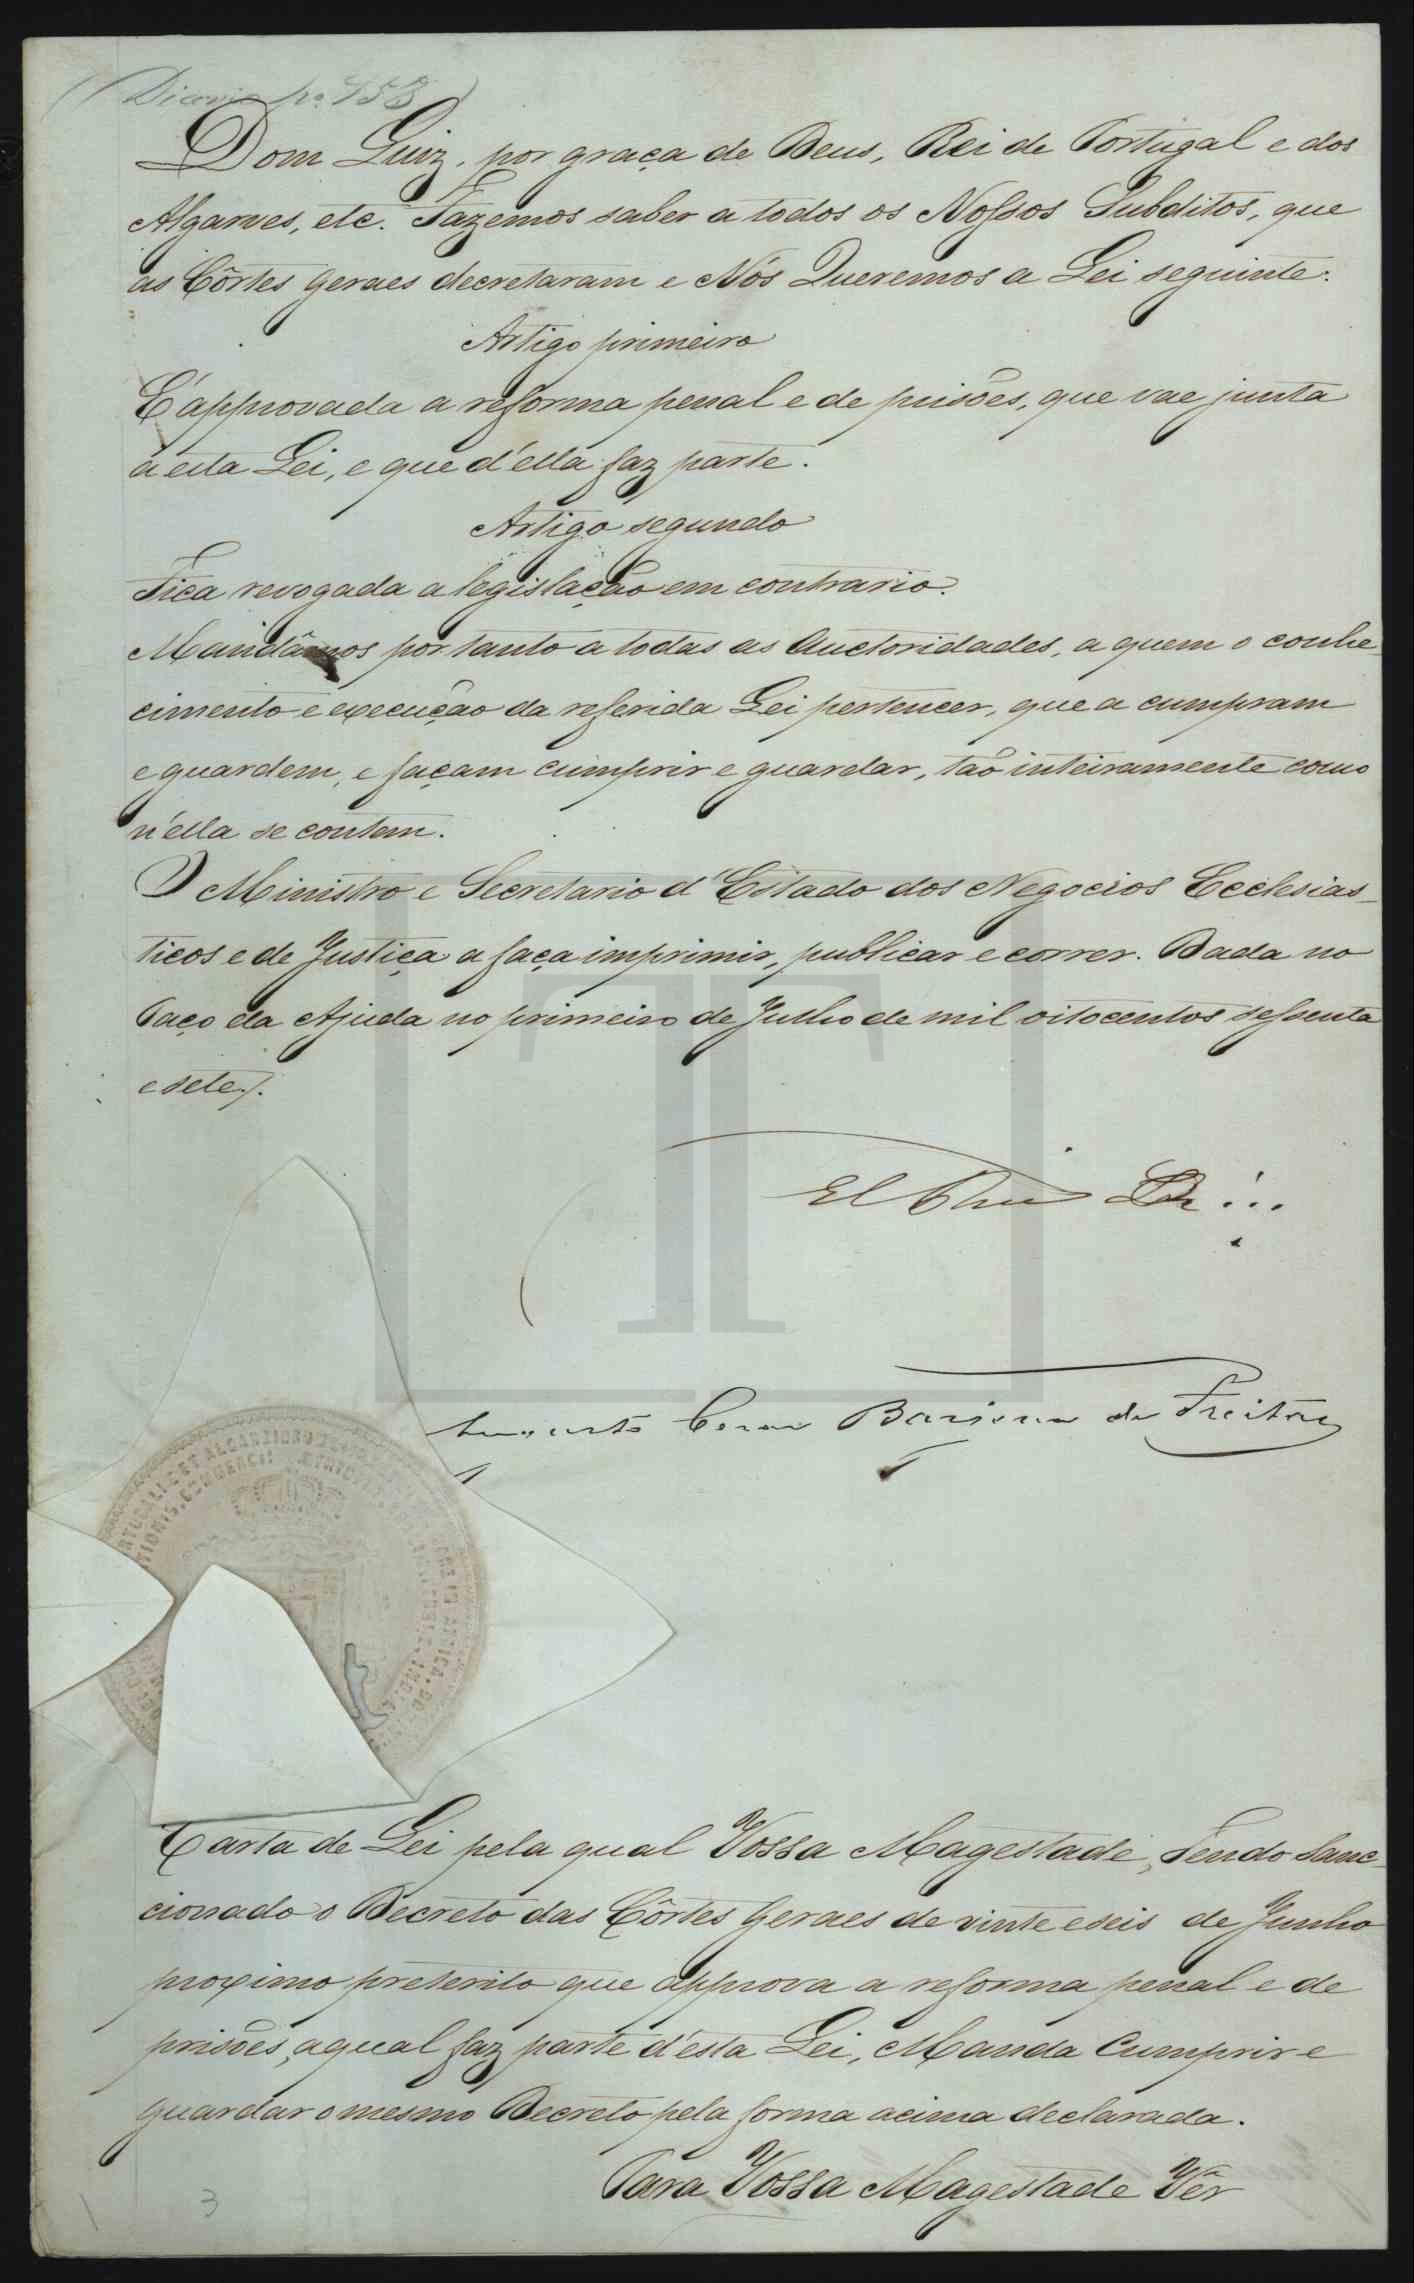 (Diario nº 153)
Dom Luiz, por graça de Deus, Rei de Portugal e dos
Algarves, etc. Fazemos saber a todos os Nossos Subditos, que
as Côrtes Geraes decretaram e Nós Queremos a Lei seguinte:
Artigo primeiro
É approvada a reforma penal e de prisões, que vae junta
a esta Lei, e que d'ella faz parte.
Artigo segundo
Fica revogada a legislação em contrario.
Mandâmos portanto a todas as Auctoridades, a quem o conhe-
cimento e execução da referida Lei pertencer, que a cumpram
e guardem, e façam cumprir e guardar, tão inteiramente como
n'ella se contem.
O Ministro e Secretario d'Estado dos Negocios Ecclesias-
ticos e de Justiça a faça imprimir, publicar e correr. Dada no
Paço da Ajuda no primeiro de Julho de mil oitocentos sessenta
e sete.
El Rei
Augusto Cesar Barjona de Freitas
PORTUGALIÆ ET ALGARBIORUM
COMMERCII
Carta de Lei pela qual Vossa Magestade, Tendo Sanc-
cionado o Decreto das Côrtes Geraes de vinte e seis de Junho
proximo preterito que approva a reforma penal e de
prisões, a qual faz parte d'esta Lei, Manda Cumprir e
guardar o mesmo Decreto pela forma acima declarada.
Para Vossa Magestade Vêr
3